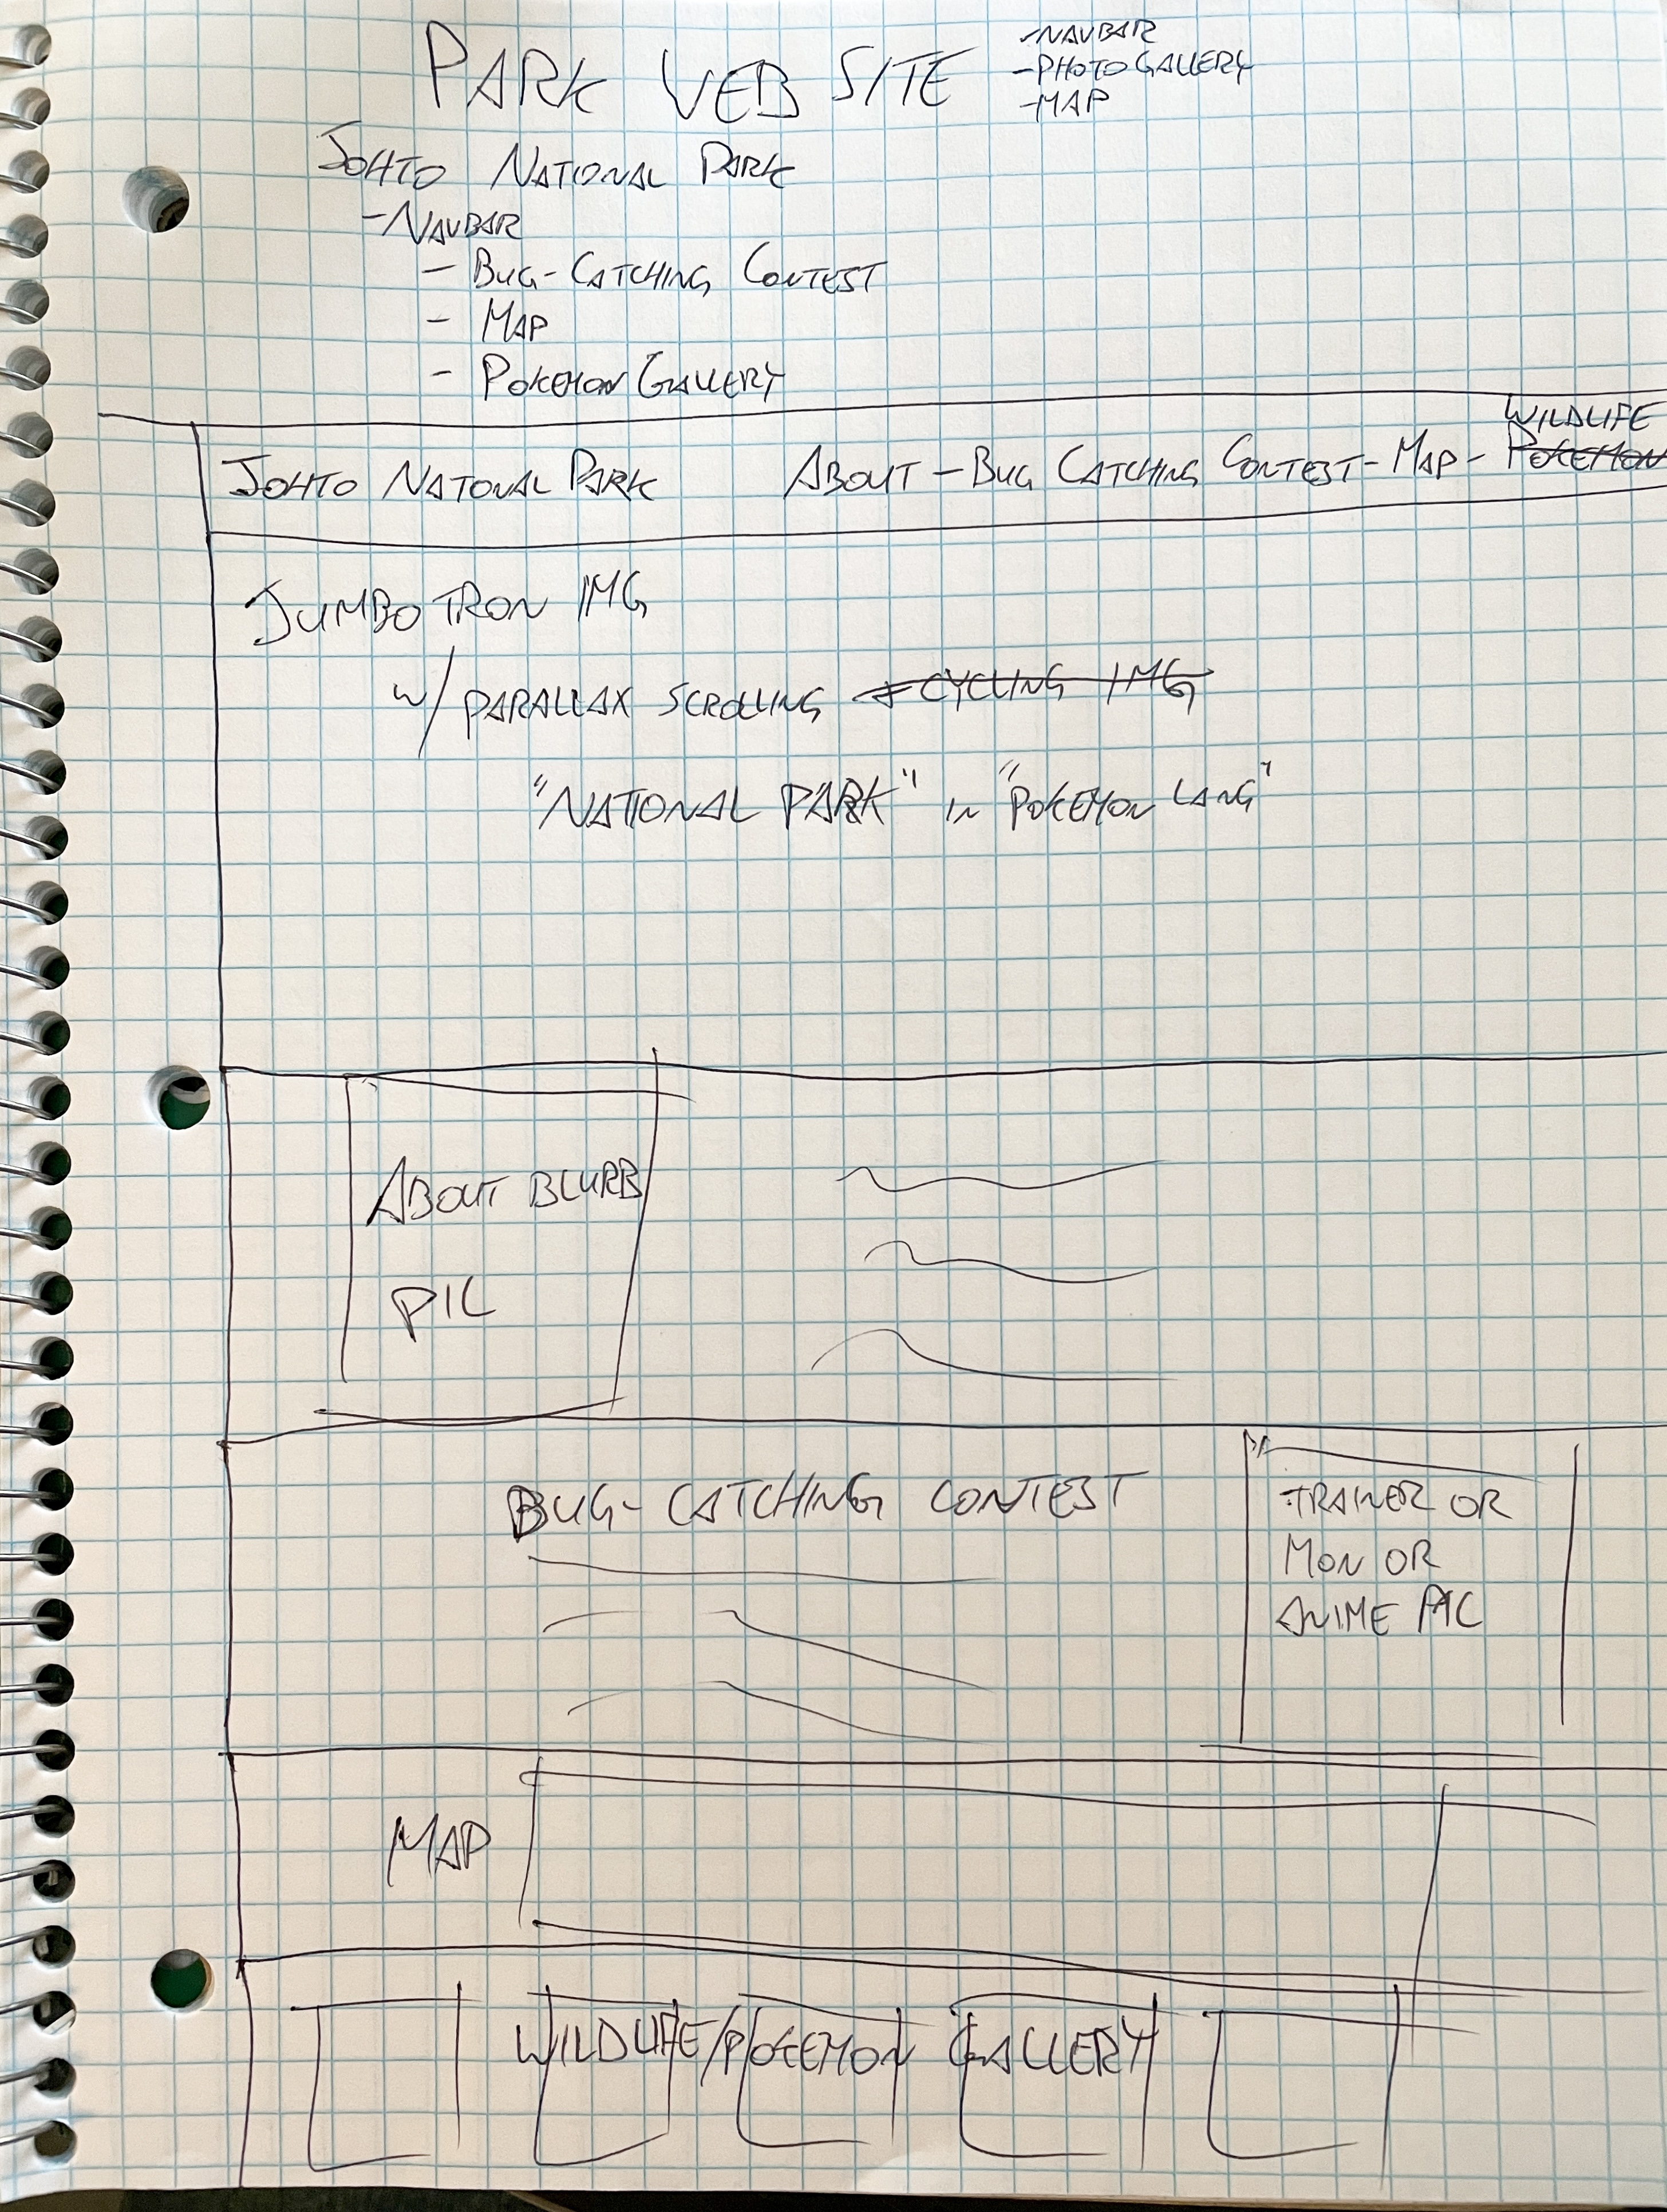 PARK WEB SITE
-NAVBAR
-PHOTO GALLERY
-MAP
JOHTO NATIONAL PARK
-NAVBAR
- BUG-CATCHING CONTEST
- MAP
- POKEMON GALLERY
WILDLIFE
JOHTO NATONAL PARK ABOUT - BUG CATCHING CONTEST - MAP - POKEMON
JUMBOTRON IMG
W/ PARALLAX SCROLLING & CYCLING IMG
"NATIONAL PARK" IN "POKEMON LANG"
ABOUT BLURB
PIC
BUG-CATCHING CONTEST
TRAINER OR
MON OR
ANIME PIC
MAP
WILDLIFE/POKEMON GALLERY